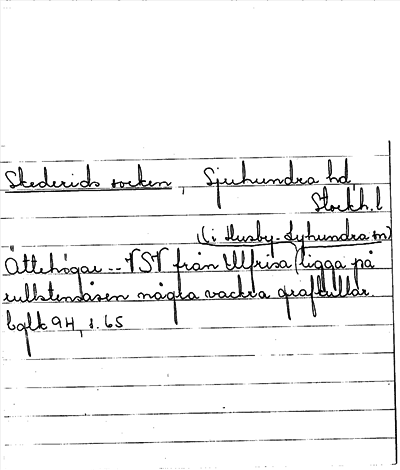 Skederids socken, Sjuhundra hd,
Stockh. l
(i Husby-Lyhundra sn)
Ättehögar -- VSV från Ulfrisa ligga på
rullstensåsen några vackra grafkullar.
bglk 94, s. 65